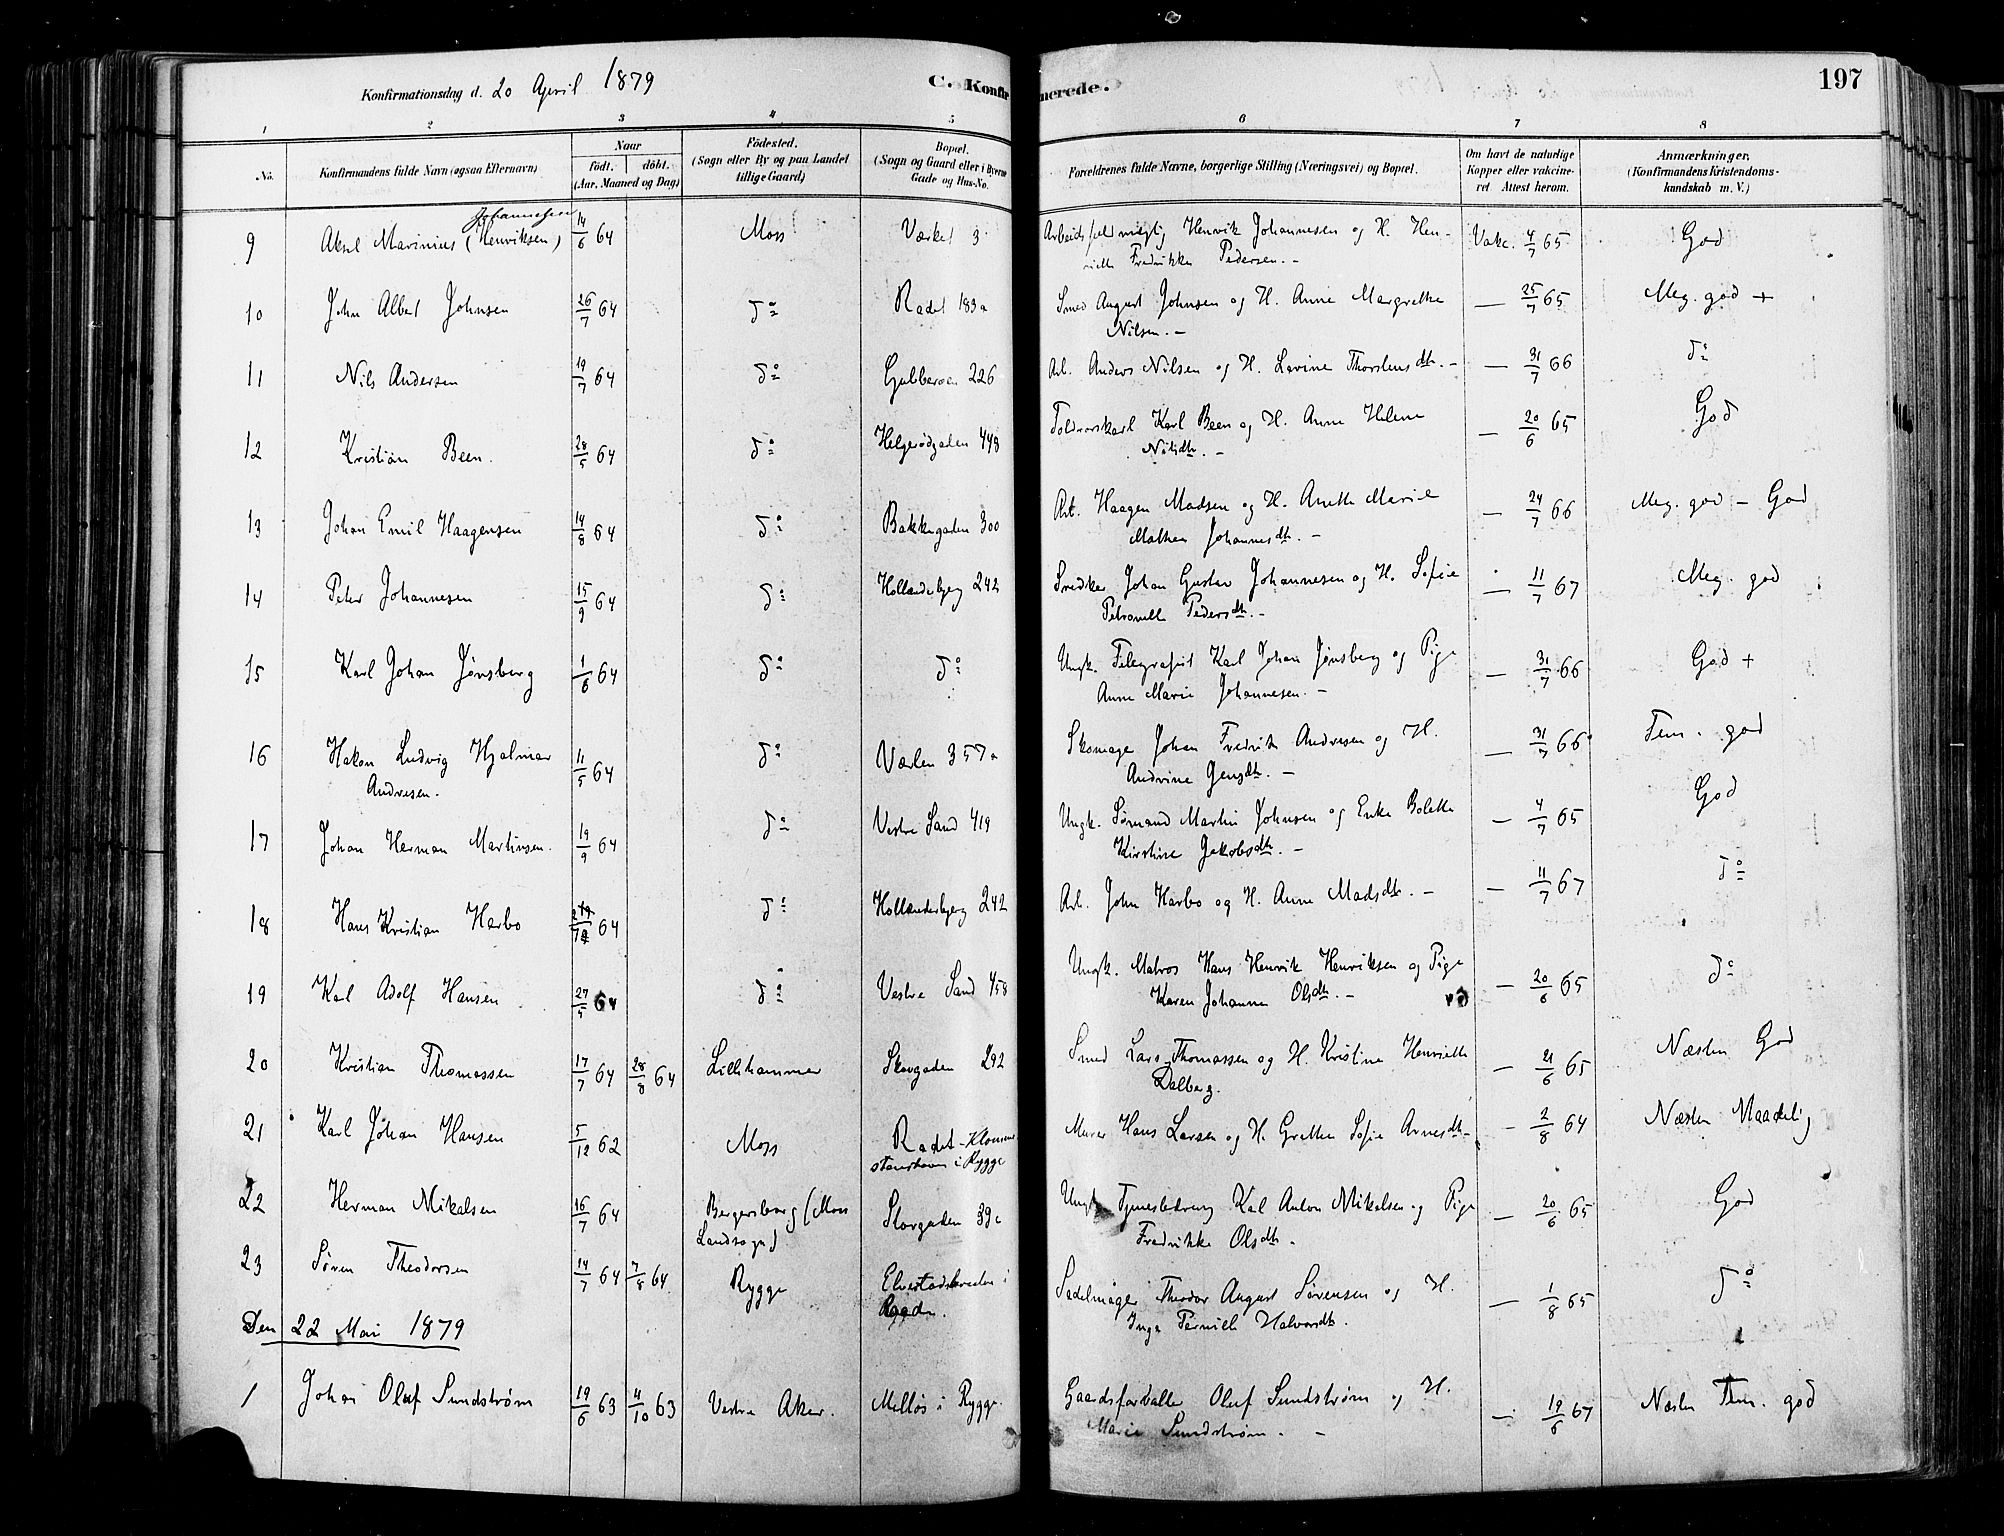 Konfirmationsdag d. 20 April 1879 C. Konfirmerede. 197
1 2 3 4 5 6 7 8
No. Konfirmandens fulde Navn (ogsaa Efternavn) Naar født. døbt. (Aar, Maaned og Dag) Fødested. (Sogn eller By og paa Landet tillige Gaard) Bopæl. (Sogn og Gaard eller i Byerne Gade og Hus-No. Forældrenes fulde Navne, borgerlige Stilling (Næringsvei) og Bopæl. Om havt de naturlige Kopper eller vakcineret. Attest herom. Anmærkninger. (Konfirmandens Kristendomskundskab m. V.)
Johannesen
9 Aksel Marinius (Henriksen) 14/6 64 Moss Værket 3 Henrik Johannesen og H. Hen- Vakc. 4/7 65 God
riette Fredrikke Pedersen. -
10 John Albert Johnsen 26/7 64 do Radet 183a Smed August Johnsen og H. Anne Margrethe — 25/7 65 Meg. god +
Nilsen. -
11 Nils Andersen 19/7 64 do 226 Arb. Anders Nilsen og H. Lovine Thorstensdtr. - — 31/7 66 do
12 Kristian Been. 28/5 64 do Helgerødgaden 448 Karl Been og H. Anne Helene — 20/6 65 God
Nilsdtr. -
13 Johan Emil Haagensen 14/8 64 do Bakkegaden 300 Arb. Haagen Madsen og H. Anette Marie — 24/7 66 Meg. god - God
Mathea Johannesdtr. -
14 Peter Johannesen 15/9 64 do Hollenderbjerg 242 Snedker Johan Gustav Johannesen og H. Sofie — 11/7 67 Meg. god
Petronelle Pedersdtr. -
15 Karl Johan Jønsberg 1/6 64 do do Ungk. Telegrafist Karl Johan Jønsberg og Pige — 31/7 66 God +
Anne Marie Johannesen. -
16 Hakon Ludvig Hjalmar 11/5 64 do Værlen 357a Skomager Johan Fredrik Andresen og H. — 31/7 66 Tem. god
Andresen. Andrine Jensdtr. -
17 Johan Herman Martinsen. 19/9 64 do Vestre Sand 419 Ungk. Sømand Martin Johnsen og Enke Bolette — 4/7 65 God
Kirstine Jakobsdtr. -
18 Hans Kristian Harbo 64 do Hollenderbjerg 242 Arb. John Harbo og H. Anne Madsdtr. - — 11/7 67 do
19 Karl Adolf Hansen 27/5 64 do Vestre Sand 458 Ungk. Matros Hans Henrik Henriksen og Pige — 20/6 65 do
Karen Johanne Olsdtr. -
20 Kristian Thomassen 17/7 64 28/8 64 Lillehammer Skovgaden 292 Smed Lars Thomassen og H. Kristine Henriette — 21/6 65 Næsten God
Dalberg.
21 Karl Johan Hansen 5/12 62 Moss Radet - Murer Hans Larsen og H. Grethe Sofie Arnesdtr. - 2/8 64 Næsten Maadelig
i Rygge
22 Herman Mikalsen 16/7 64 Bergersborg (Moss Storgaden 39c Ungk. Karl Anton Mikalsen og Pige — 20/6 65 God
Landsogn) Fredrikke Olsdtr.
23 Søren Theodorsen 14/7 64 7/8 64 Rygge i Sadelmager Theodor August Sørensen og H. — 1/8 65 do
Inge Pernille Halvorsdtr.
Den 22 Mai 1879
1 Johan Oluf Sundstrøm 19/6 63 4/10 63 Vestre Aker. Melløs i Rygge. Gaardsforvalter Oluf Sundstrøm og H. — 19/6 67 Næsten Tem. god
Marie Sundstrøm. -